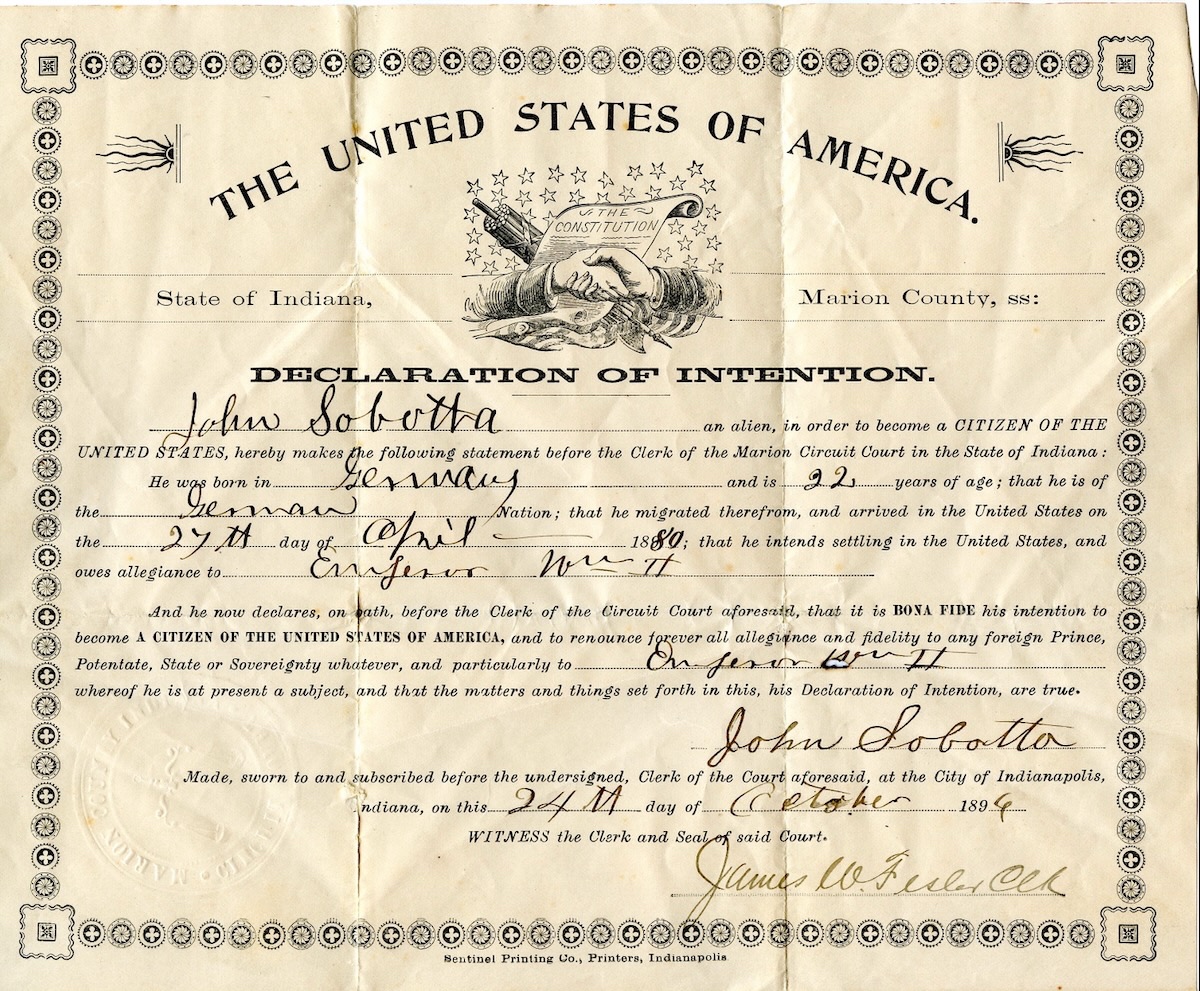 THE UNITED STATES OF AMERICA.
THE
CONSTITUTION
State of Indiana, Marion County, ss:
DECLARATION OF INTENTION.
John Sobotta an alien, in order to become a CITIZEN OF THE
UNITED STATES, hereby makes the following statement before the Clerk of the Marion Circuit Court in the State of Indiana:
He was born in Germany and is 22 years of age; that he is of
the German Nation; that he migrated therefrom, and arrived in the United States on
the 27th day of April 1880; that he intends settling in the United States, and
owes allegiance to Emperor Wm II
And he now declares, on oath, before the Clerk of the Circuit Court aforesaid, that it is BONA FIDE his intention to
become A CITIZEN OF THE UNITED STATES OF AMERICA, and to renounce forever all allegiance and fidelity to any foreign Prince,
Potentate, State or Sovereignty whatever, and particularly to Emperor Wm II
whereof he is at present a subject, and that the matters and things set forth in this, his Declaration of Intention, are true.
John Sobotta
Made, sworn to and subscribed before the undersigned, Clerk of the Court aforesaid, at the City of Indianapolis,
Indiana, on this 24th day of October 1896
WITNESS the Clerk and Seal of said Court.
James W. Fesler Clk
MARION
Sentinel Printing Co., Printers, Indianapolis